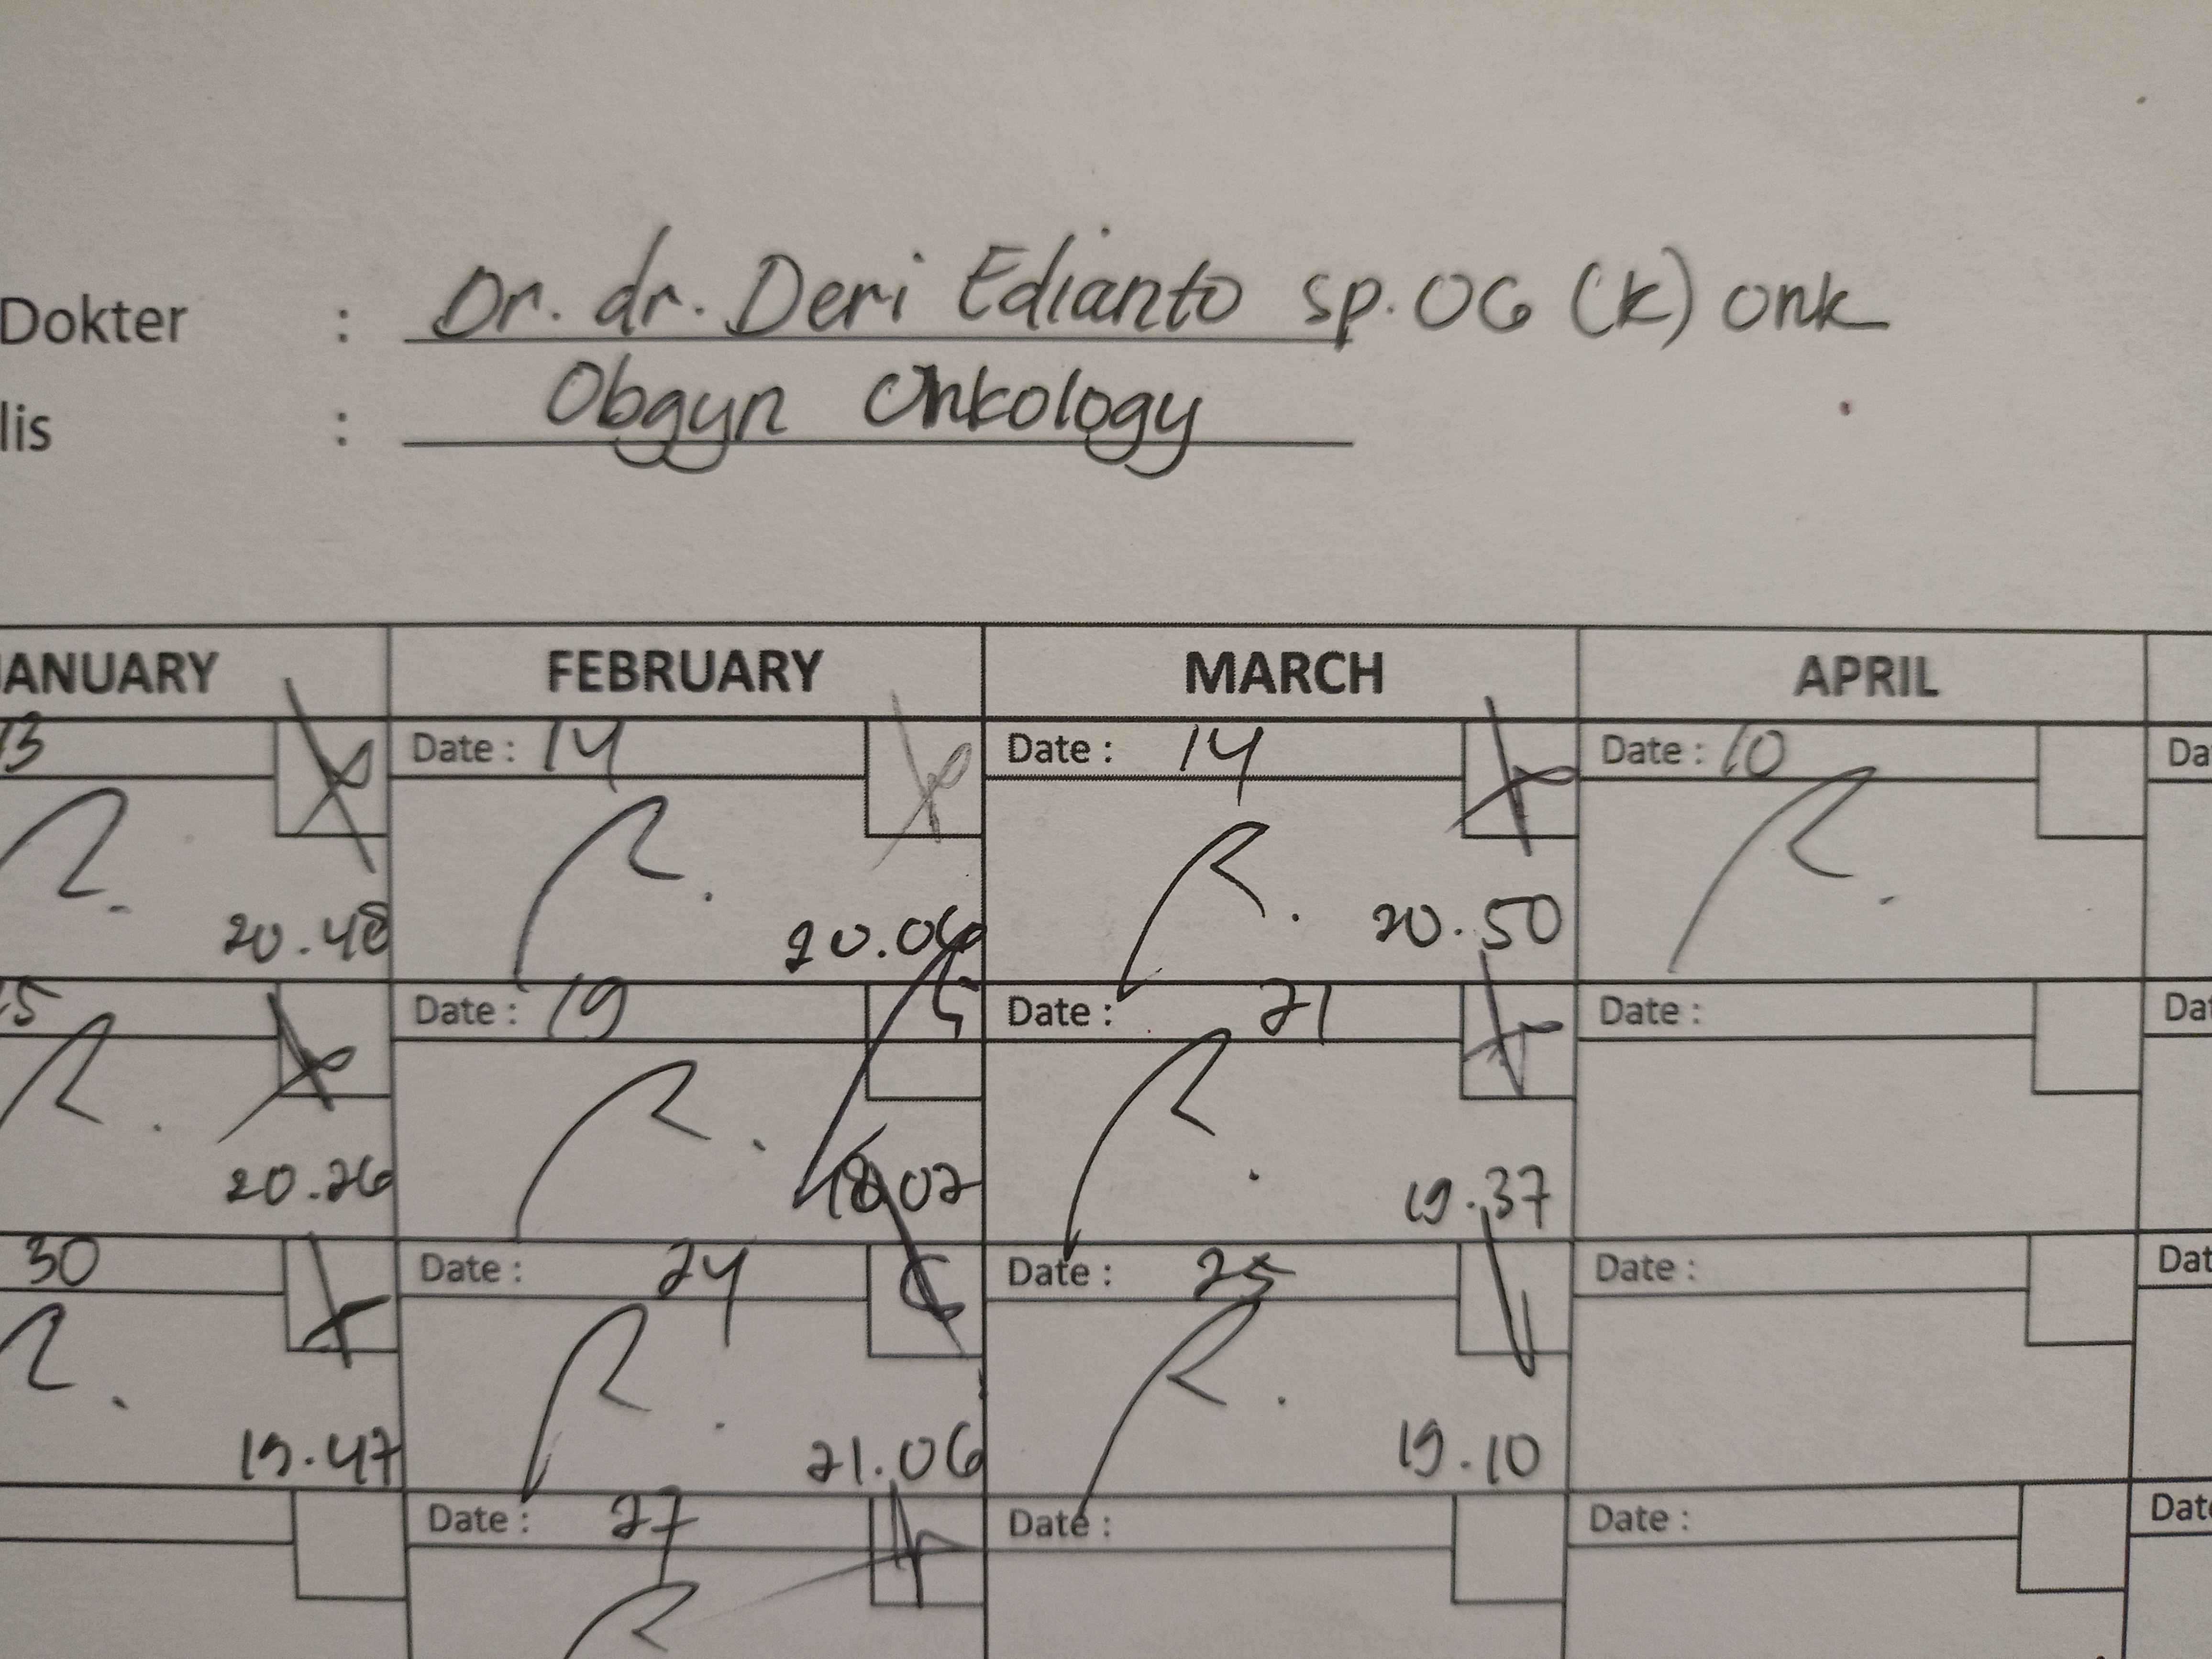 Dokter : Dr. dr. Deri Edianto sp.OG (k) onk
lis : Obgyn Onkology
ANUARY FEBRUARY MARCH APRIL
13 Date : 14 Date : 14 Date : 10 Da
20.48 20.50
15 Date : 19 Date : 21 Date : Dat
20.26 18.02 19.37
30 Date : 24 Date : 25 Date : Dat
19.47 21.06 19.10
Date : 27 Date : Date : Dat